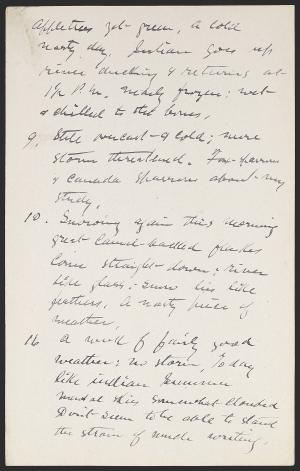 appletrees yet green, a cold
nasty day. Julian goes up
river ducking & returns at
1½ P.M. nearly frozen; wet
& chilled to the bones.
9. Still overcast & cold; more
storm threatened. Fox-sparrow
& Canada sparrow about my
study.
10. Snowing again this morning
great camel-backed flakes
come straight down; river
like glass; snow lies like
feathers. A nasty piece of
weather.
16 A week of fairly good
weather; no storm, To day
like indian Summer
skies somewhat clouded
Don't seem to be able to stand
the strain of much writing.